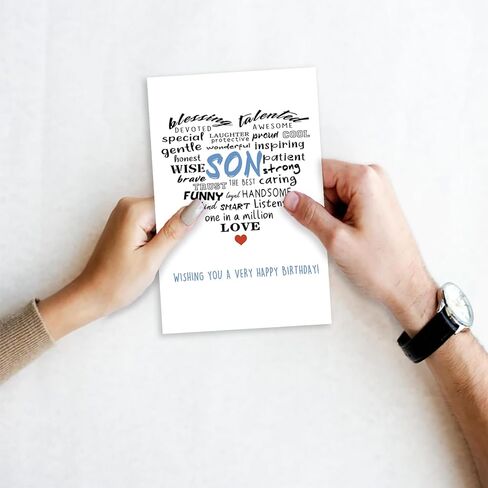 blessing talented
DEVOTED LAUGHTER AWESOME
special protective proud COOL
gentle wonderful inspiring
honest SON patient
WISE strong
brave TRUST THE BEST caring
FUNNY loyal HANDSOME
SMART Listens
one in a million
LOVE
WISHING YOU A VERY HAPPY BIRTHDAY!